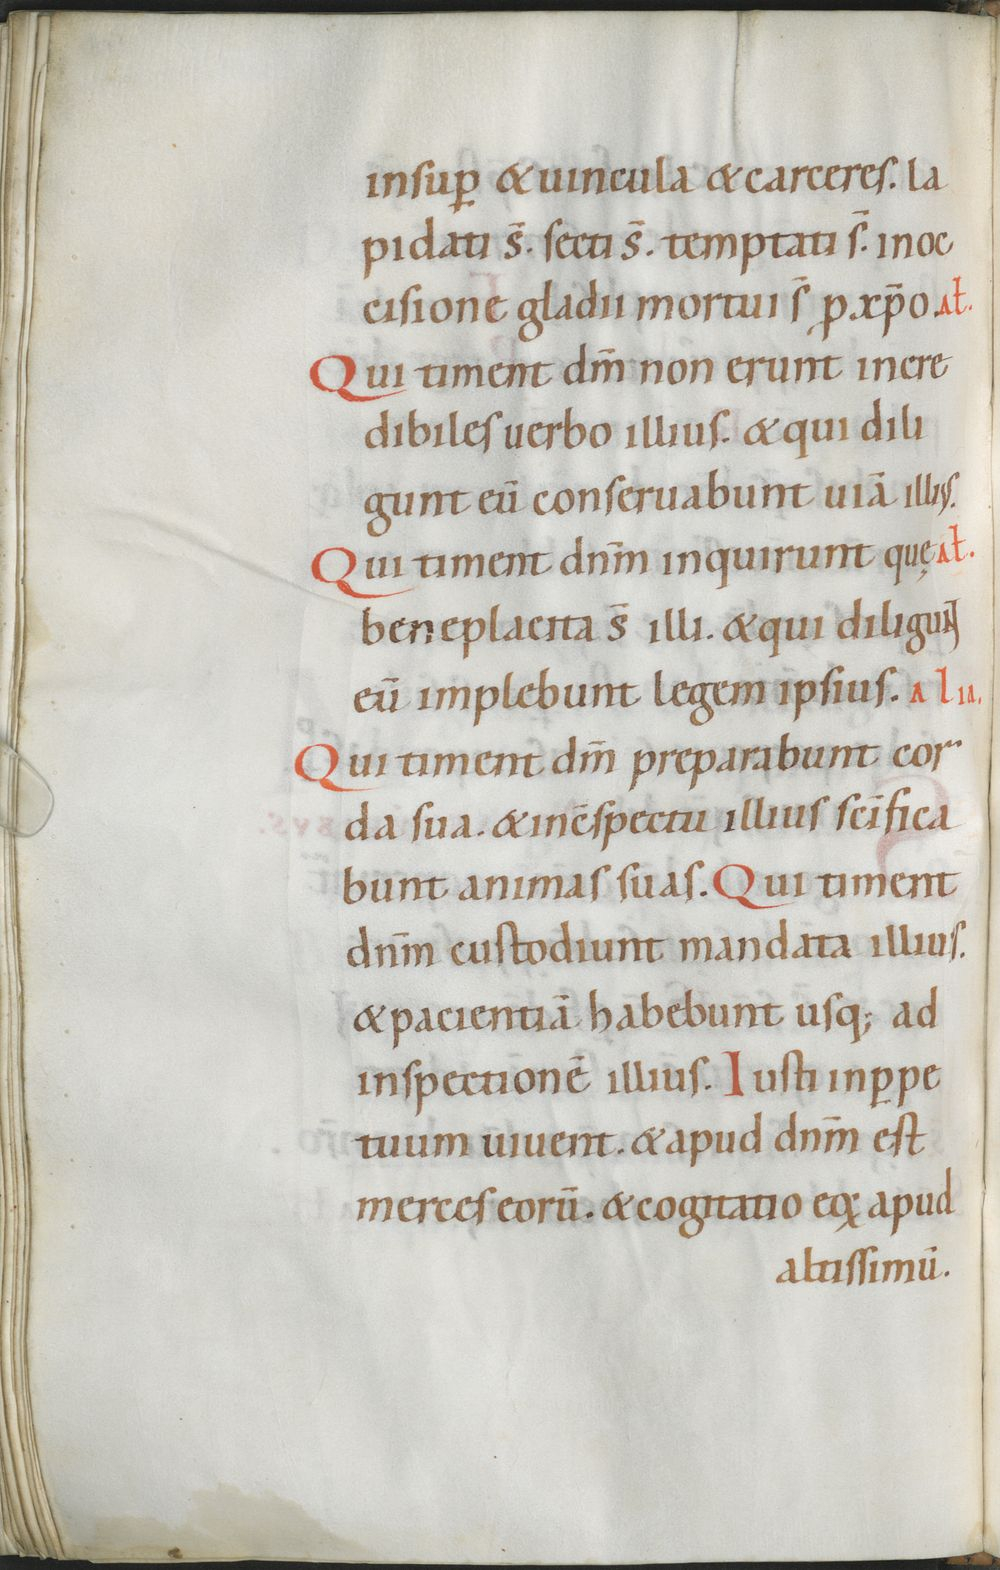 insuꝑ & uincula & carceres. la
pidati s̄. secti s̄. temptati s̄. inoc
cisione gladii mortui s̄ ꝓ xp̄o. Ał.
Qui timent dm̄ non erunt incre
dibiles uerbo illius. & qui dili
gunt eū conseruabunt uiā illiꝰ.
Qui timent dn̄m inquirunt quę Ał.
beneplacita s̄ illi. & qui diligunt
eū implebunt legem ipsius. Alia.
Qui timent dm̄ preparabunt cor
da sua. & incspectu illius scīfica
bunt animas suas. Qui timent
dn̄m custodiunt mandata illius.
& pacientiā habebunt usq; ad
inspectionē illius. Iusti inꝑpe
tuum uiuent. & apud dn̄m est
merces eorū. & cogitatio eoꝝ apud
altissimū.